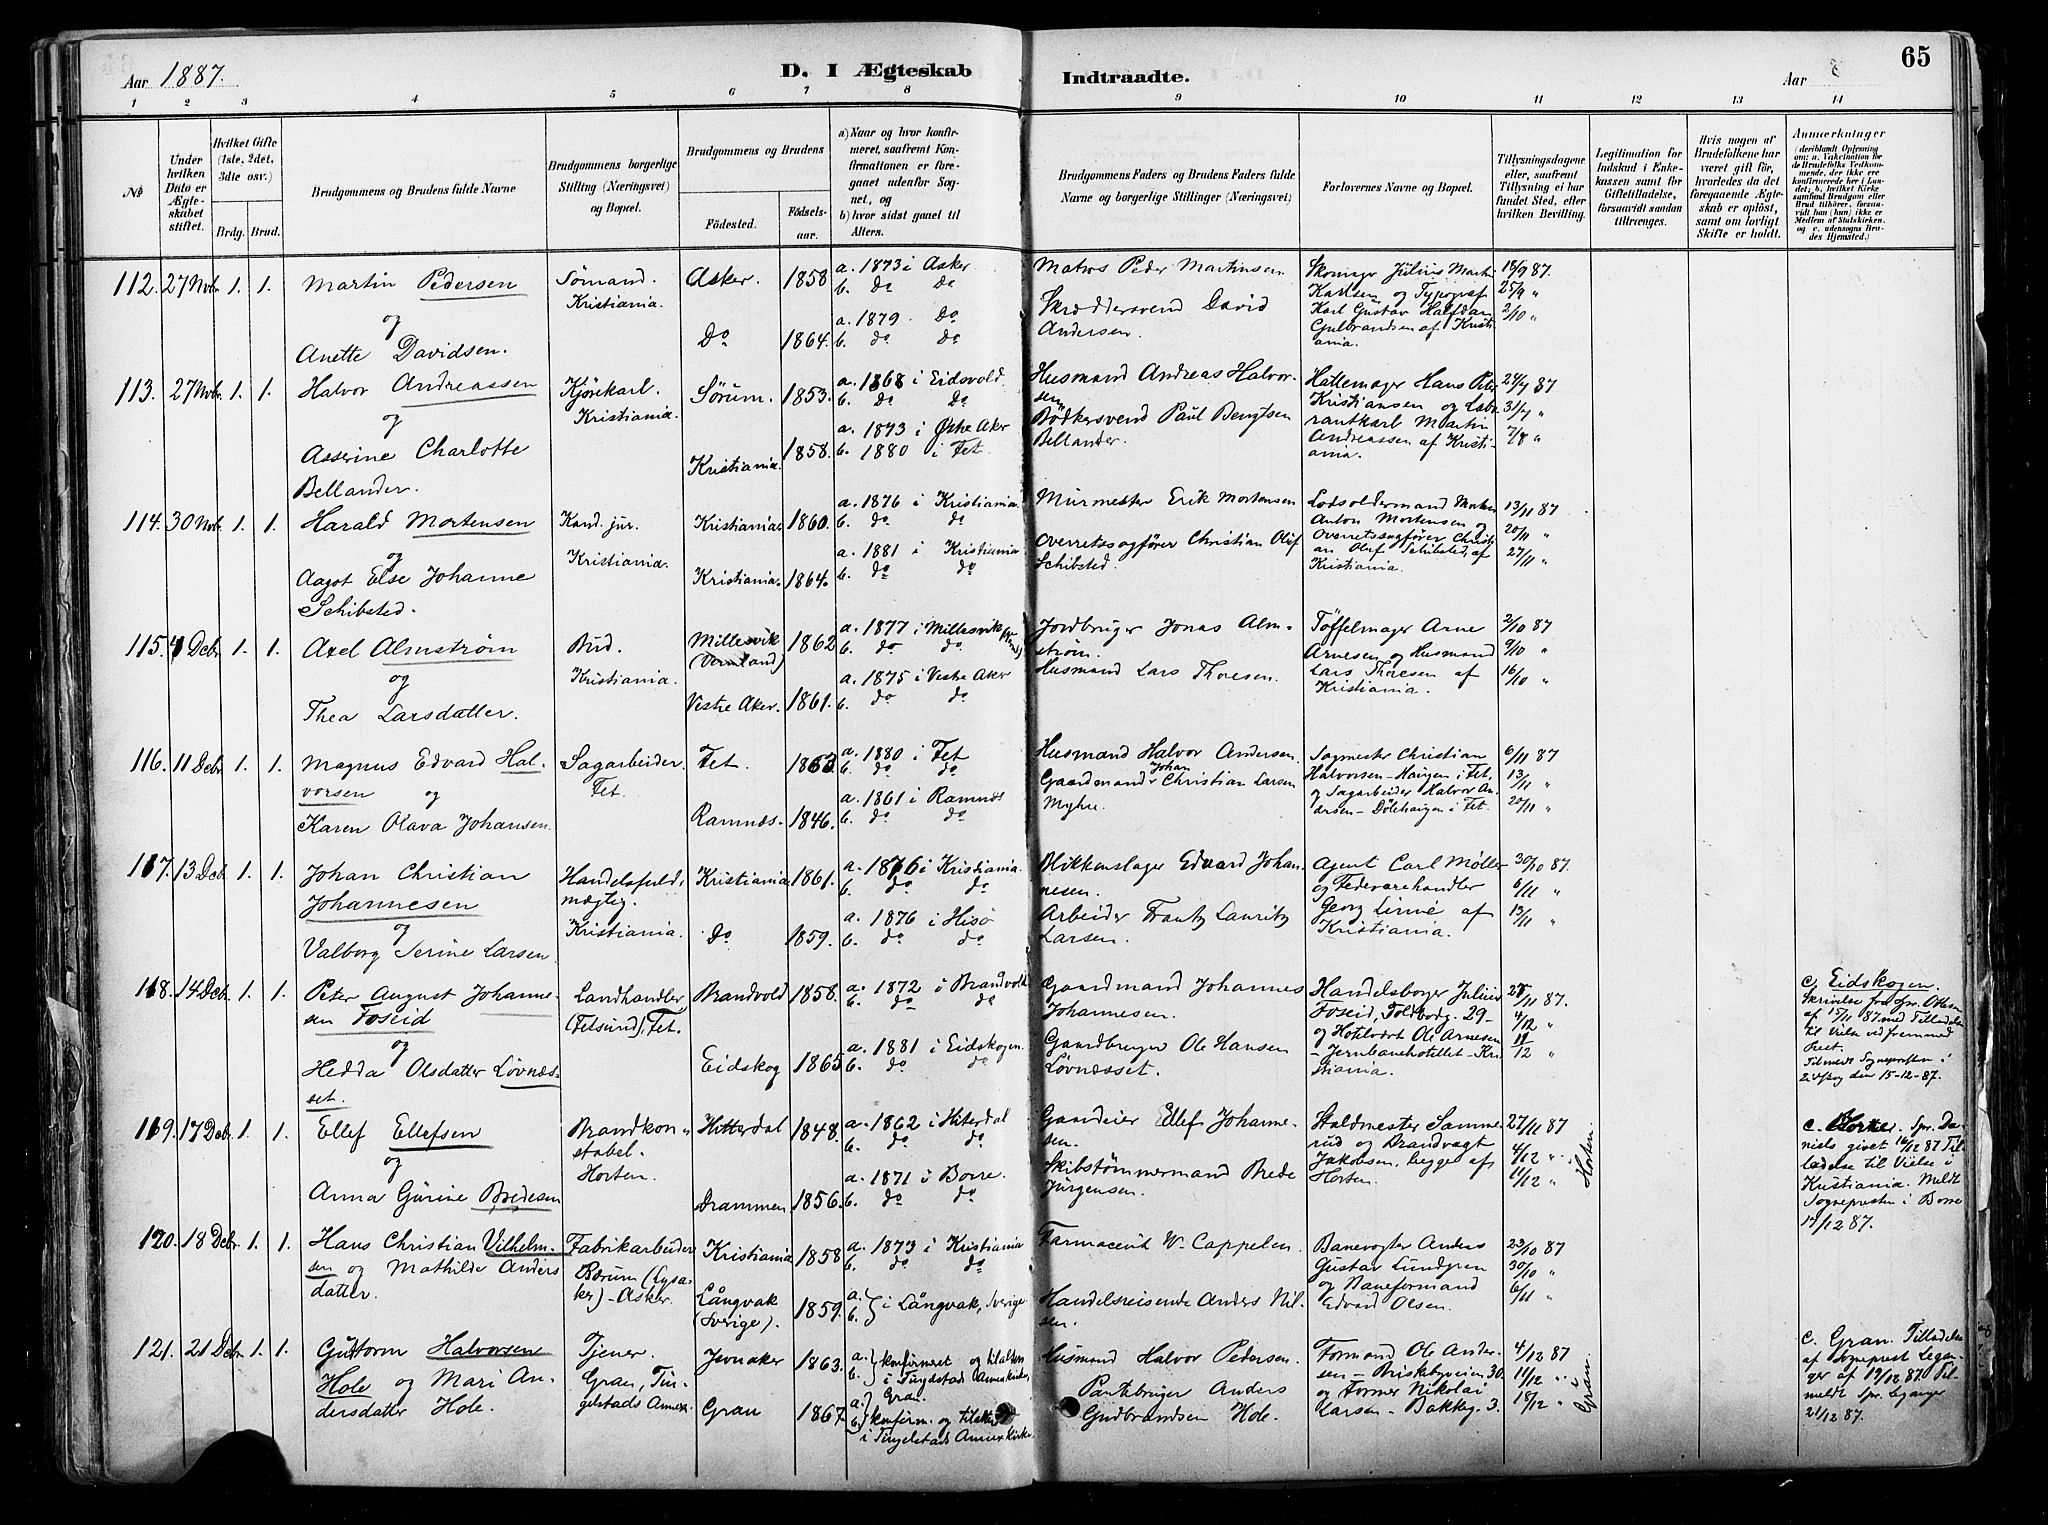 Aar 1887.
D. I Ægteskab
Indtraadte.
Aar 8
65
1 2 3 4 5 6 7 8 9 10 11 12 13 14
No
Under hvilken Dato er Ægteskabet stiftet.
Hvilket Gifte (1ste, 2det, 3die osv.)
Brdg. Brud.
Brudgommens og Brudens fulde Navne
Brudgommens borgerlige Stilling (Næringsvei) og Bopæl.
Brudgommens og Brudens
Fødested.
Fødselsaar.
a) Naar og hvor konfirmeret, saafremt Konfirmationen er foregaaet udenfor Sognet, og
b) hvor sidst gaaet til Alters.
Brudgommens Faders og Brudens Faders fulde Navne og borgerlige Stillinger (Næringsvei)
Forlovernes Navne og Bopæl.
Tillysningsdagene eller, saafremt Tillysning ei har fundet Sted, efter hvilken Bevilling.
Legitimation for Indskud i Enkekassen samt for Giftetilladelse, forsaavidt saadan tiltrænges.
Hvis nogen af Brudefolkene har været gift før, hvorledes da det foregaaende Ægteskab er opløst, samt om lovligt Skifte er holdt.
Anmærkninger (deriblandt Oplysning om: a. Vakcination for de Brudefolks Vedkommende, der ikke ere konfirmerede her i Landet; b. hvilket Kirkesamfund Brudgom eller Brud tilhører, forsaavidt han (hun) ikke er Medlem af Statskirken, og c. udensogns Brudes Hjemsted.)
112. 27 Nvbr. 1. 1. Martin Pedersen
og
Anette Davidsen.
Sømand.
Kristiania.
Asker. 1858
Do 1864.
a. 1873 i Asker
b. do do
a. 1879. Do
b. do do
Matros Peder Martinsen
Skræddersvend David
Andersen.
Skomager Julius Marti
Karlsen og Typograf
Karl Gustav Halfdan
Gulbrandsen af Kristi-
ania.
18/9 87.
25/9 "
2/10 "
113. 27 Nvbr. 1. 1. Halvor Andreassen
og
Asserine Charlotte
Bellander.
Kjørekarl.
Kristiania.
Sørum. 1853.
Kristiania. 1858.
a. 1868 i Eidsvold.
b. do do
a. 1873 i Østre Aker
b. 1880 i Fet.
Husmand Andreas Halvor-
sen
Bødkersvend Paul Bengtsen
Bellander.
Hattemager Hans Peter
Kristiansen og Labo-
rantkarl Martin
Andreassen af Kristi-
ania.
24/7 87
31/7 "
7/8 "
114. 30 Nvbr. 1. 1. Harald Mortensen
og
Aagot Else Johanne
Schibsted.
Kand. jur.
Kristiania.
Kristiania 1860.
Kristiania. 1864.
a. 1876 i Kristiania.
b. do do
a. 1881 i Kristiania
b. do do
Murmester Erik Mortensen
Overretssagfører Christian Olaf
Schibsted.
Lodsoldermand
Anton Mortensen og
Overretssagfører Christi-
an Oluf Schibsted, af
Kristiania.
13/11 87
20/11 "
27/11 "
115. 4 Dcbr 1. 1. Axel Almstrøm
og
Thea Larsdatter.
Bud.
Kristiania.
Millesvik
(Vermland) 1862
Vestre Aker. 1861.
a. 1877 i Millesvik
b. do do
a. 1875 i Vestre Aker
b. do do
Jordbruger Jonas Alm-
strøm.
Husmand Lars Thoresen.
Tøffelmager Arne
Arnesen og Husmand
Lars Thoresen af
Kristiania.
2/10 87
9/10 "
16/10 "
116. 11 Dcbr 1. 1. Magnus Edvard Hal-
vorsen og
Karen Olava Johansen.
Sagarbeider.
Fet.
Fet. 1863.
Ramnæs. 1846.
a. 1880 i Fet
b. do do
a. 1861 i Ramnæs
b. do do
Husmand Halvor Andersen.
Gaardmand Johan Christian Larsen
Myhre.
Sagmester Christian
Halvorsen-Haugen i Fet,
og Sagarbeider Halvor An-
dersen-Dølehaugen i Fet.
6/11 87
13/11 "
20/11 "
117. 13 Dcbr. 1. 1. Johan Christian
Johannesen
og
Valborg Serine Larsen.
Handelsfuld-
mægtig.
Kristiania.
Kristiania 1861.
Do 1859.
a. 1876 i Kristiania.
b. do do
a. 1876 i Hisø
b. do do
Blikkenslager Edvard Johan
nesen.
Arbeider Frantz Lauritz
Larsen.
Agent Carl Møller
og Fedevarehandler
Georg Linné af
Kristiania.
30/10 87.
6/11 "
13/11 "
118. 14 Dcbr. 1. 1. Peter August Johanne-
sen Foseid
og
Hedda Olsdatter Løvnæs-
set.
Landhandler
(Fetsund), Fet.
Brandvold 1858.
Eidskog 1865
a. 1872 i Brandvold
b. do do
a. 1881 i Eidskogen.
b. do do
Gaardmand Johannes
Johannesen.
Gaardbruger Ole Hansen
Løvnæsset.
Handelsborger Julius
Foseid, Toldbodg. 29-
og Hotelvært Ole Arnesen
-Jernbanehotellet-Kri
stiania.
/11 87.
4/12 "
11/12 "
c. Eidskogen.
Skrivelse fra Spr.
af 15/11 87 med Tilladelse
til Vielse ved fremmed
Prest.
Tilmeldt Sognepresten i
Eidskog den 15-12-87.
119. 17 Dcbr. 1. 1. Ellef Ellefsen
og
Anna Gurine Bredesen
Brandkon-
stabel.
Horten.
Hitterdal 1848.
Drammen 1856.
a. 1862 i Hiterdal
b. do do
a. 1871 i Borre.
b. do do
Gaardeier Ellef Johanne-
sen.
Skibstømmermand Brede
Jürgensen.
Staldmester Samme-
rud og Brandvagt
Jakobsen, begge af
Horten.
27/11 87
4/12 "
11/12 "
Horten.
c. Spr. Da-
niels givet 16/12 87 Til-
ladelse til Vielse i
Kristiania. Meldt
Sognepresten i Borre
17/12 87.
120. 18 Dcbr. 1. 1. Hans Christian Vilhelm-
sen og Mathilde Anders
datter.
Fabrikarbeider
Bærum (Lysa-
ker)-Asker.
Kristiania 1858
Långvak
(Sverige). 1859.
a. 1873 i Kristiania
b. do do
a. b. } i Långvak, Sverige
Farmaceut W. Cappelen.
Handelsreisende Anders Nil-
sen.
Banevogter Anders
Gustav Lundgren
og Baneformand
Edvard Olsen.
23/10 87
30/10 "
6/11 "
121. 21 Dcbr. 1. 1. Guttorm Halvorsen
Hole og Mari An-
dersdatter Hole.
Tjener.
Gran, Tin-
gelstads Annex.
Jevnaker 1863.
Gran 1867.
a. b. } konfirmeret og tilalters
i Tingelstad Annexkirke,
Gran.
a. b. } konfirm. og tilalters
i Tingelstads Annexkirke.
Husmand Halvor Pedersen.
Pantebruger Anders
Gudbrandsen Hole.
Formand Ole Ander
sen-Briskebyveien 30.
og Former Nikolai
Larsen-Bakkeg. 3.
4/12 87
11/12 "
18/12 "
i Gran.
c. Gran. Tilladelse
af Sogneprest Legan-
ger af 19/12 87. Til-
meldt Spr. Leganger
21/12 87.